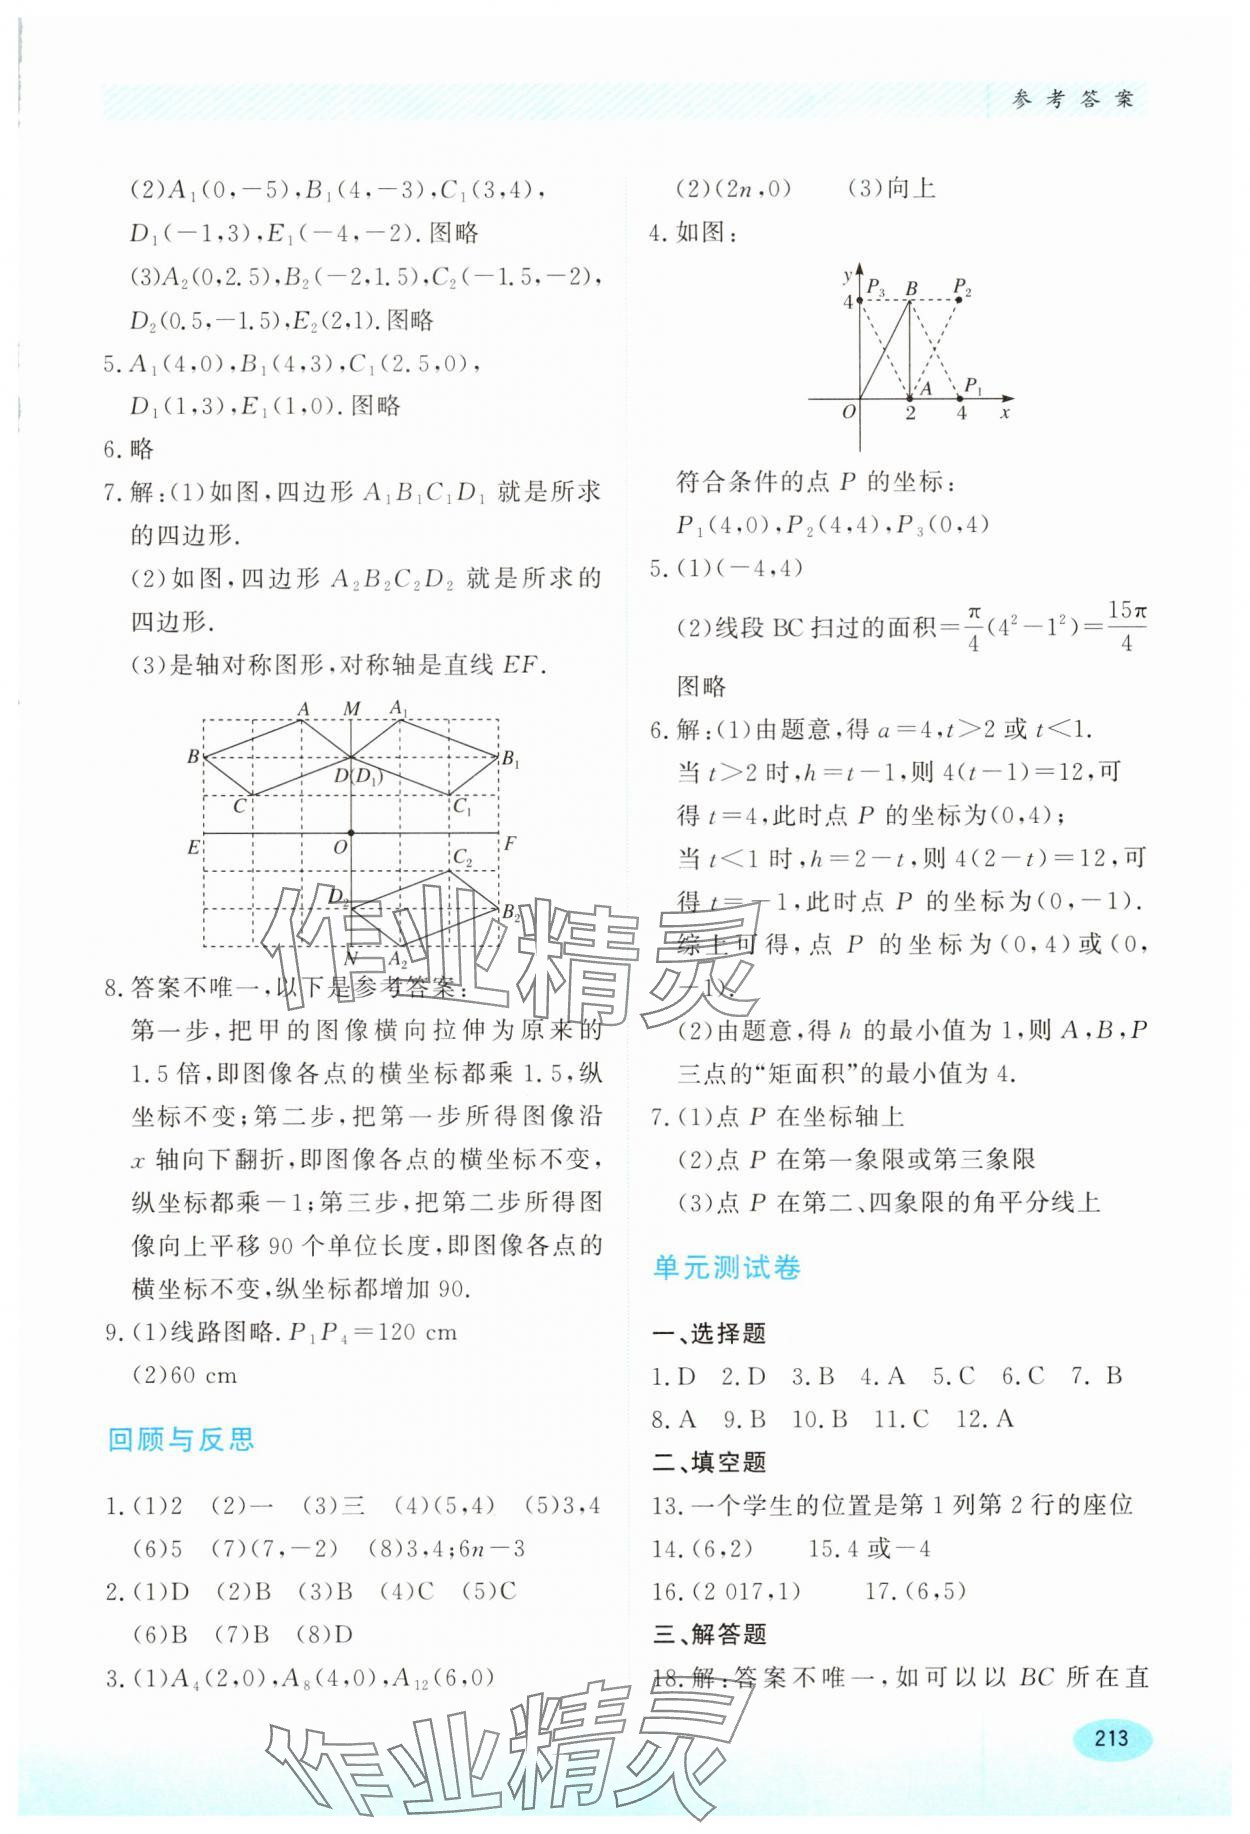 参考答案
(2)A₁(0,-5),B₁(4,-3),C₁(3,4),
D₁(-1,3),E₁(-4,-2).图略
(3)A₂(0,2.5),B₂(-2,1.5),C₂(-1.5,-2),
D₂(0.5,-1.5),E₂(2,1).图略
5.A₁(4,0),B₁(4,3),C₁(2.5,0),
D₁(1,3),E₁(1,0).图略
6.略
7.解:(1)如图,四边形 A₁B₁C₁D₁ 就是所求
的四边形.
(2)如图,四边形 A₂B₂C₂D₂ 就是所求的
四边形.
(3)是轴对称图形,对称轴是直线 EF.
A M A₁
B D(D₁) B₁
C C₁
E O F
C₂
D₂ B₂
N A₂
8.答案不唯一,以下是参考答案:
第一步,把甲的图像横向拉伸为原来的
1.5倍,即图像各点的横坐标都乘 1.5,纵
坐标不变;第二步,把第一步所得图像沿
x 轴向下翻折,即图像各点的横坐标不变,
纵坐标都乘-1;第三步,把第二步所得图
像向上平移 90 个单位长度,即图像各点的
横坐标不变,纵坐标都增加 90.
9.(1)线路图略.P₁P₄=120 cm
(2)60 cm
回顾与反思
1.(1)2 (2)一 (3)三 (4)(5,4) (5)3,4
(6)5 (7)(7,-2) (8)3,4;6n-3
2.(1)D (2)B (3)B (4)C (5)C
(6)B (7)B (8)D
3.(1)A₄(2,0),A₈(4,0),A₁₂(6,0)
(2)(2n,0) (3)向上
4.如图:
y P₃ B P₂
4
A P₁
O 2 4 x
符合条件的点 P 的坐标:
P₁(4,0),P₂(4,4),P₃(0,4)
5.(1)(-4,4)
(2)线段 BC 扫过的面积=π/4(4²-1²)=15π/4
图略
6.解:(1)由题意,得 a=4,t>2 或 t<1.
当 t>2 时,h=t-1,则 4(t-1)=12,可
得 t=4,此时点 P 的坐标为(0,4);
当 t<1 时,h=2-t,则 4(2-t)=12,可
得 t=-1,此时点 P 的坐标为(0,-1).
综上可得,点 P 的坐标为(0,4)或(0,
-1).
(2)由题意,得 h 的最小值为 1,则 A,B,P
三点的“矩面积”的最小值为 4.
7.(1)点 P 在坐标轴上
(2)点 P 在第一象限或第三象限
(3)点 P 在第二、四象限的角平分线上
单元测试卷
一、选择题
1.D 2.D 3.B 4.A 5.C 6.C 7. B
8.A 9.B 10.B 11.C 12.A
二、填空题
13.一个学生的位置是第 1 列第 2 行的座位
14.(6,2) 15.4 或-4
16.(2 017,1) 17.(6,5)
三、解答题
18.解:答案不唯一,如可以以 BC 所在直
213
作业精灵
作业精灵